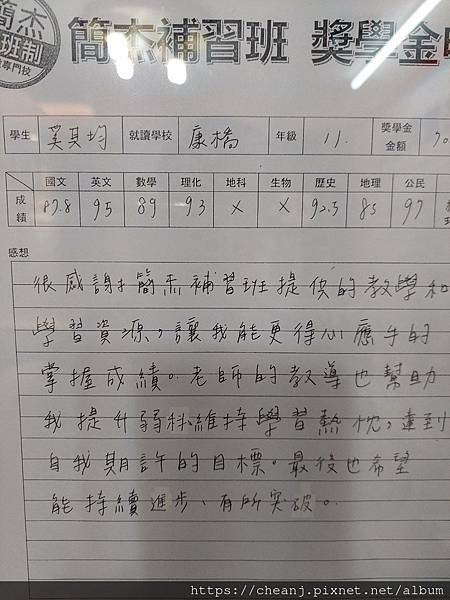 簡杰
班制
專門校
簡杰補習班 獎學金申
學生 吳其均 就讀學校 康橋 年級 11. 獎學金金額 70
國文 英文 數學 理化 地科 生物 歷史 地理 公民
成績 87.8 95 89 93 X X 92.5 85 97
感想
很感謝簡杰補習班提供的教學和
學習資源，讓我能更得心應手的
掌握成績。老師的教導也幫助
我提升弱科維持學習熱忱，達到
自我期許的目標。最後也希望
能持續進步、有所突破。
https://cheanj.pixnet.net/album